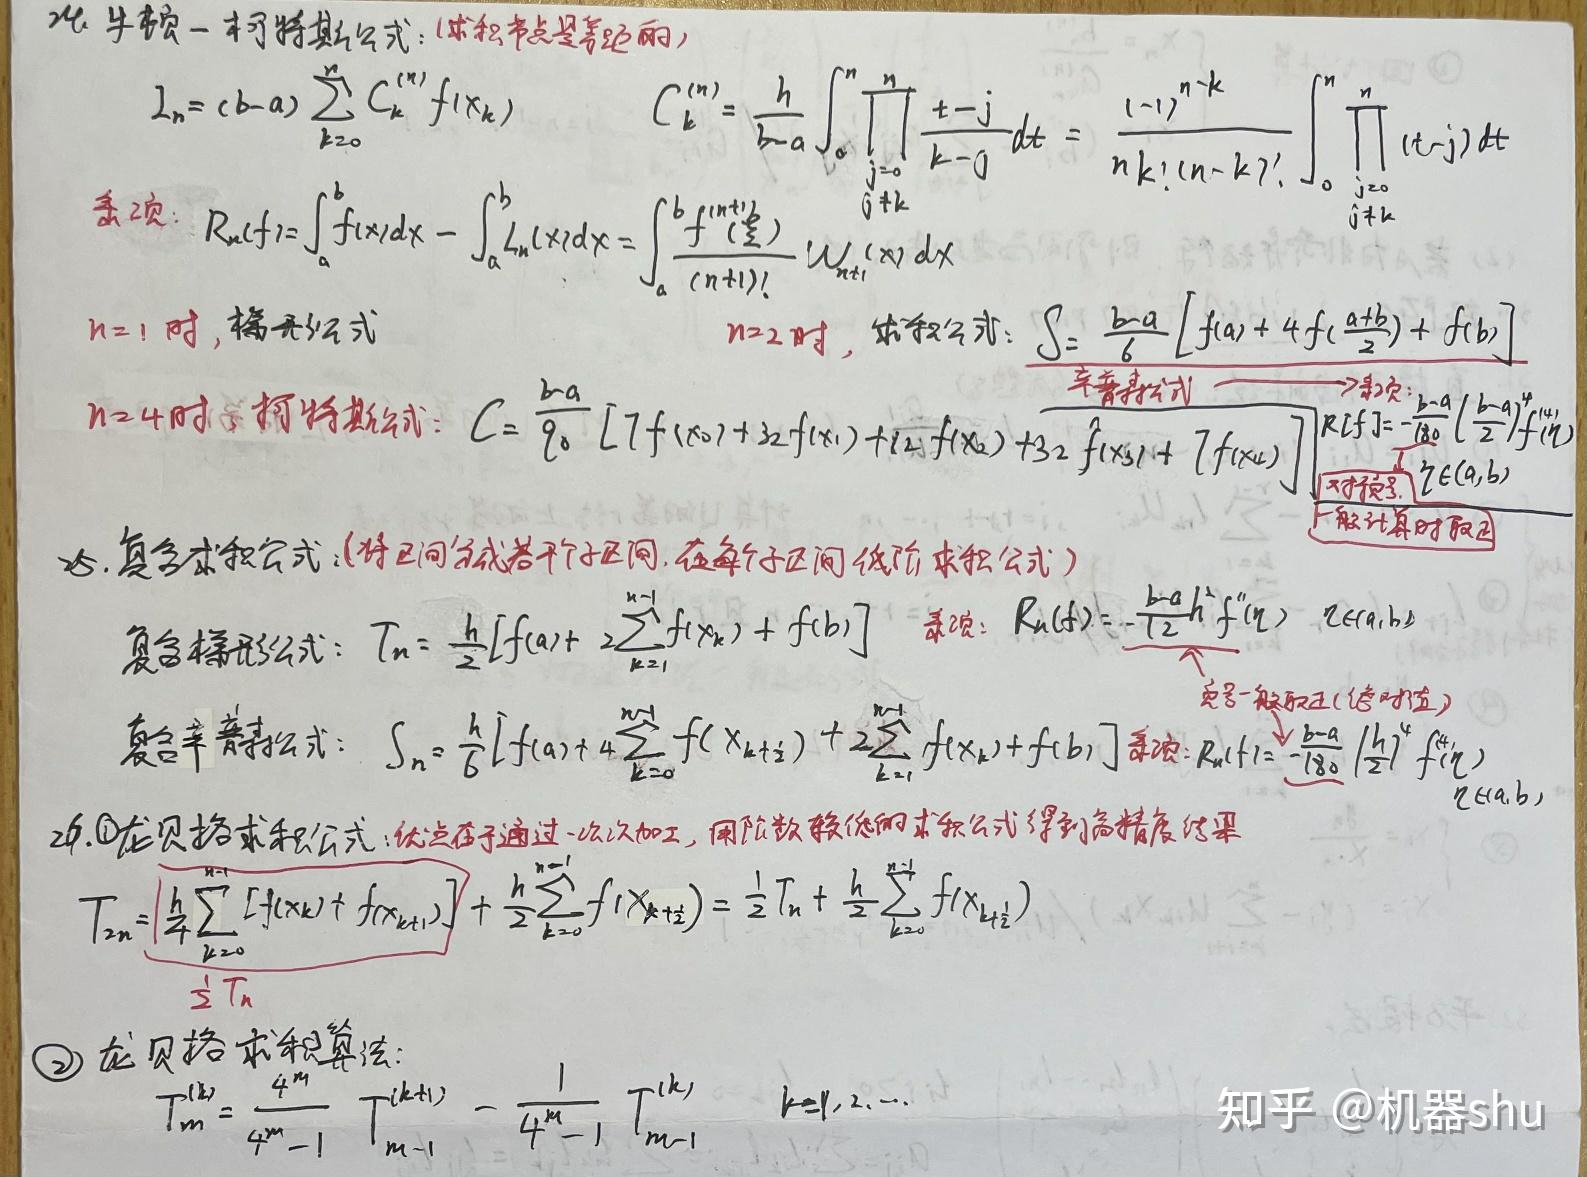 24. 牛顿-柯特斯公式:(求积节点是等距的)
Iₙ = (b-a) ∑_{k=0}^{n} C_k^{(n)} f(x_k)    C_k^{(n)} = h/(b-a) ∫_0^n ∏_{j=0, j≠k}^{n} (t-j)/(k-j) dt = (-1)^{n-k}/(n k!(n-k)!) ∫_0^n ∏_{j=0, j≠k}^{n} (t-j) dt
余项: Rₙ(f) = ∫_a^b f(x)dx - ∫_a^b Lₙ(x)dx = ∫_a^b f^{(n+1)}(ξ)/(n+1)! W_{n+1}(x) dx
n=1时, 梯形公式    n=2时, 求积公式: S = (b-a)/6 [f(a) + 4f((a+b)/2) + f(b)]
辛普森公式 → 余项:
R[f] = -(b-a)/180 ((b-a)/2)^4 f^{(4)}(η)
η∈(a,b)
一般计算时取正
n=4时, 柯特斯公式: C = (b-a)/90 [7f(x₀) + 32f(x₁) + 12f(x₂) + 32f(x₃) + 7f(x₄)]
25. 复合求积公式:(将区间分成若干个子区间, 在每个子区间低阶求积公式)
复合梯形公式: Tₙ = h/2 [f(a) + 2∑_{k=1}^{n-1} f(x_k) + f(b)]    余项: Rₙ(f) = -(b-a)/12 h² f''(η)    η∈(a,b)
负号一般取正(绝对值)
复合辛普森公式: Sₙ = h/6 [f(a) + 4∑_{k=0}^{n-1} f(x_{k+1/2}) + 2∑_{k=1}^{n-1} f(x_k) + f(b)]    余项: Rₙ(f) = -(b-a)/180 (h/2)^4 f^{(4)}(η)
η∈(a,b)
26. ①龙贝格求积公式: 优点在于通过一次次加工, 用阶数较低的求积公式得到高精度结果
T₂ₙ = h/4 ∑_{k=0}^{n-1} [f(x_k) + f(x_{k+1})] + h/2 ∑_{k=0}^{n-1} f(x_{k+1/2}) = 1/2 Tₙ + h/2 ∑_{k=0}^{n-1} f(x_{k+1/2})
1/2 Tₙ
② 龙贝格求积算法:
T_m^{(k)} = 4^m/(4^m-1) T_{m-1}^{(k+1)} - 1/(4^m-1) T_{m-1}^{(k)}    k=1, 2, ...
知乎 @机器shu